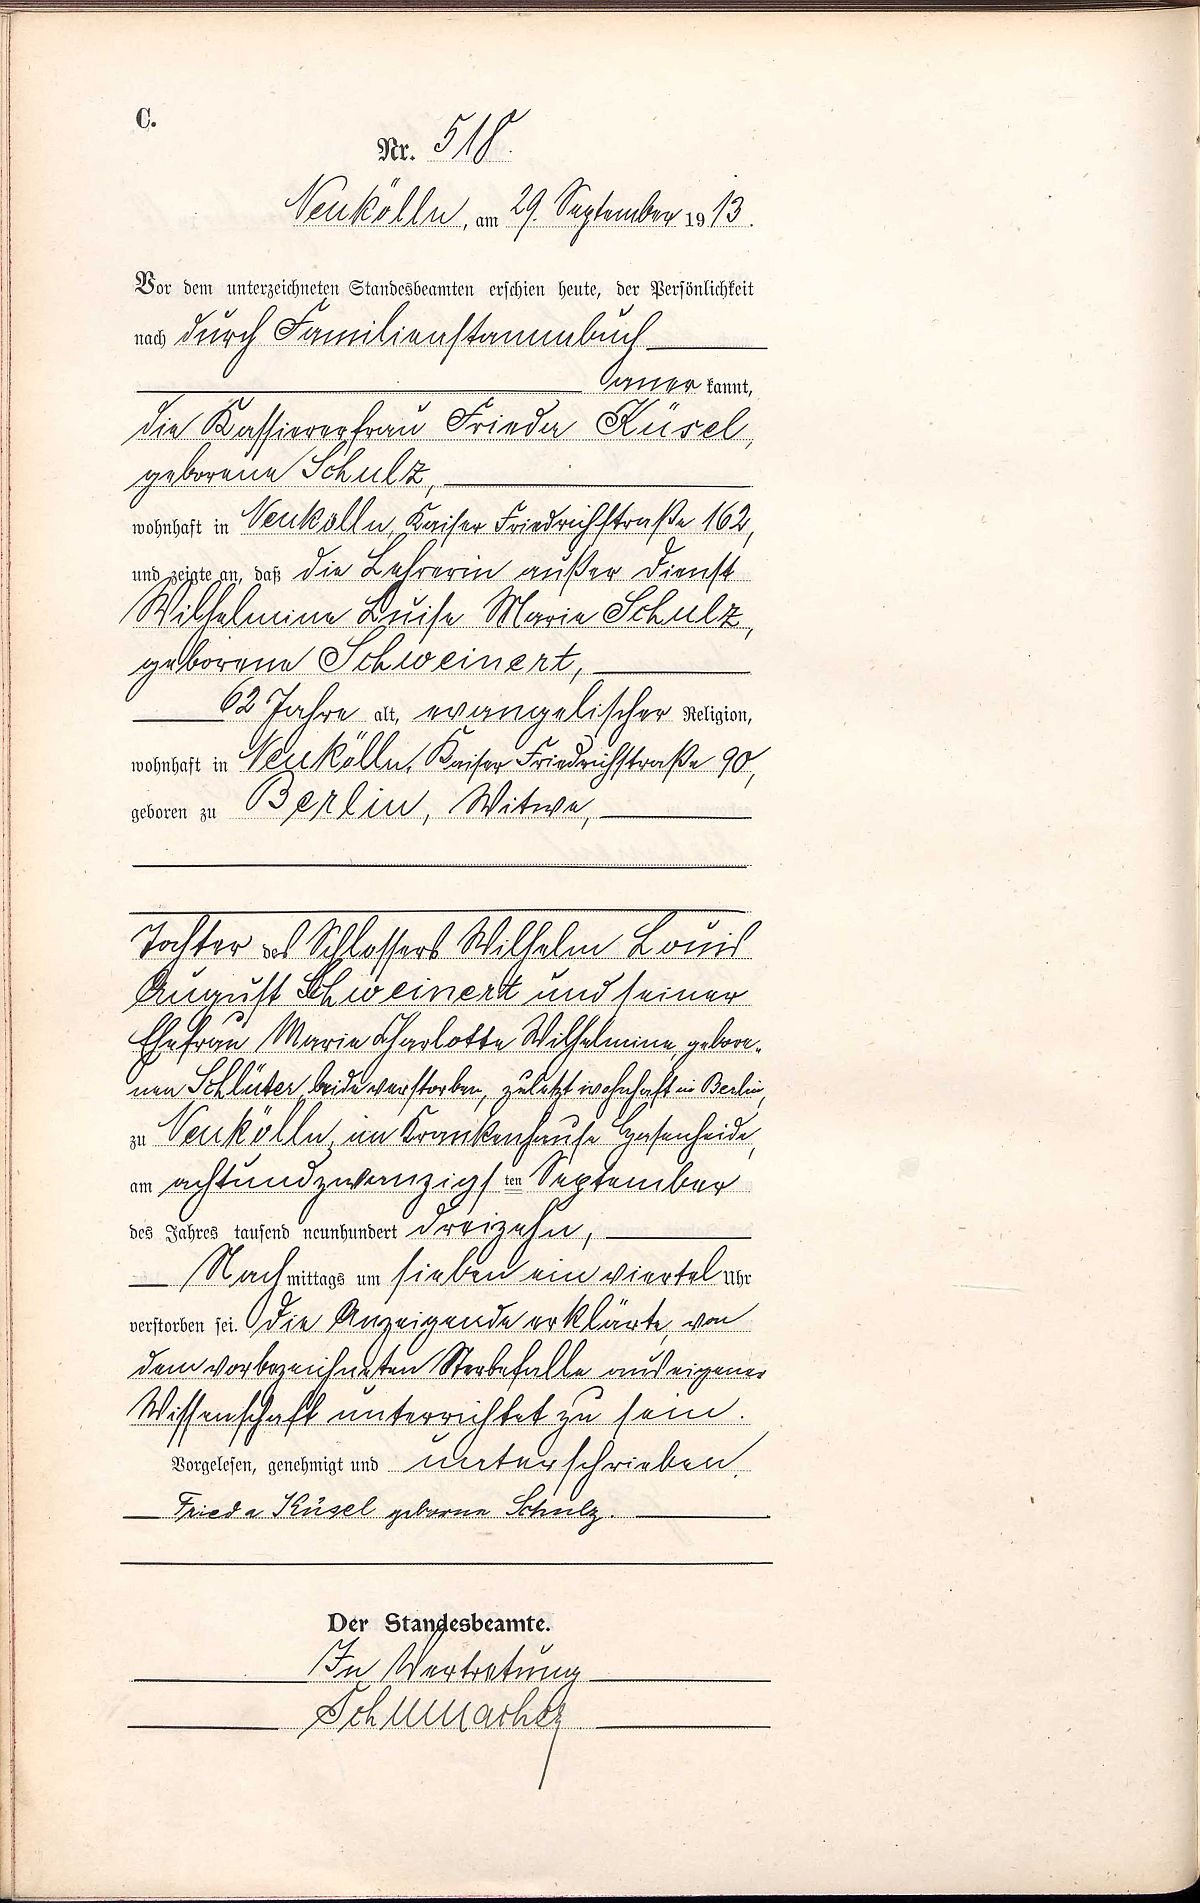 C.
Nr. 518.
Neukölln, am 29. September 1913.
Vor dem unterzeichneten Standesbeamten erschien heute, der Persönlichkeit
nach durch Familienstammbuch
anerkannt,
die Kassiererfrau Frieda Küsel,
geborene Schulz,
wohnhaft in Neukölln, Kaiser Friedrichstraße 162,
und zeigte an, daß die Lehrerin außer Dienst
Wilhelmine Luise Marie Schulz,
geborene Schweinert,
62 Jahre alt, evangelischer Religion,
wohnhaft in Neukölln, Kaiser Friedrichstraße 90,
geboren zu Berlin, Witwe,
Tochter des Schlossers Wilhelm Louis
August Schweinert und seiner
Ehefrau Marie Charlotte Wilhelmine, gebore-
nen Schlüter, beide verstorben, zuletzt wohnhaft in Berlin,
zu Neukölln, im Krankenhause Hasenheide,
am achtundzwanzigsten September
des Jahres tausend neunhundert dreizehn,
Nachmittags um sieben ein viertel Uhr
verstorben sei. Die Anzeigende erklärte, von
dem vorbezeichneten Sterbefalle aus eigener
Wissenschaft unterrichtet zu sein.
Vorgelesen, genehmigt und unterschrieben.
Frieda Küsel geborne Schulz.
Der Standesbeamte.
In Vertretung
Schumacher